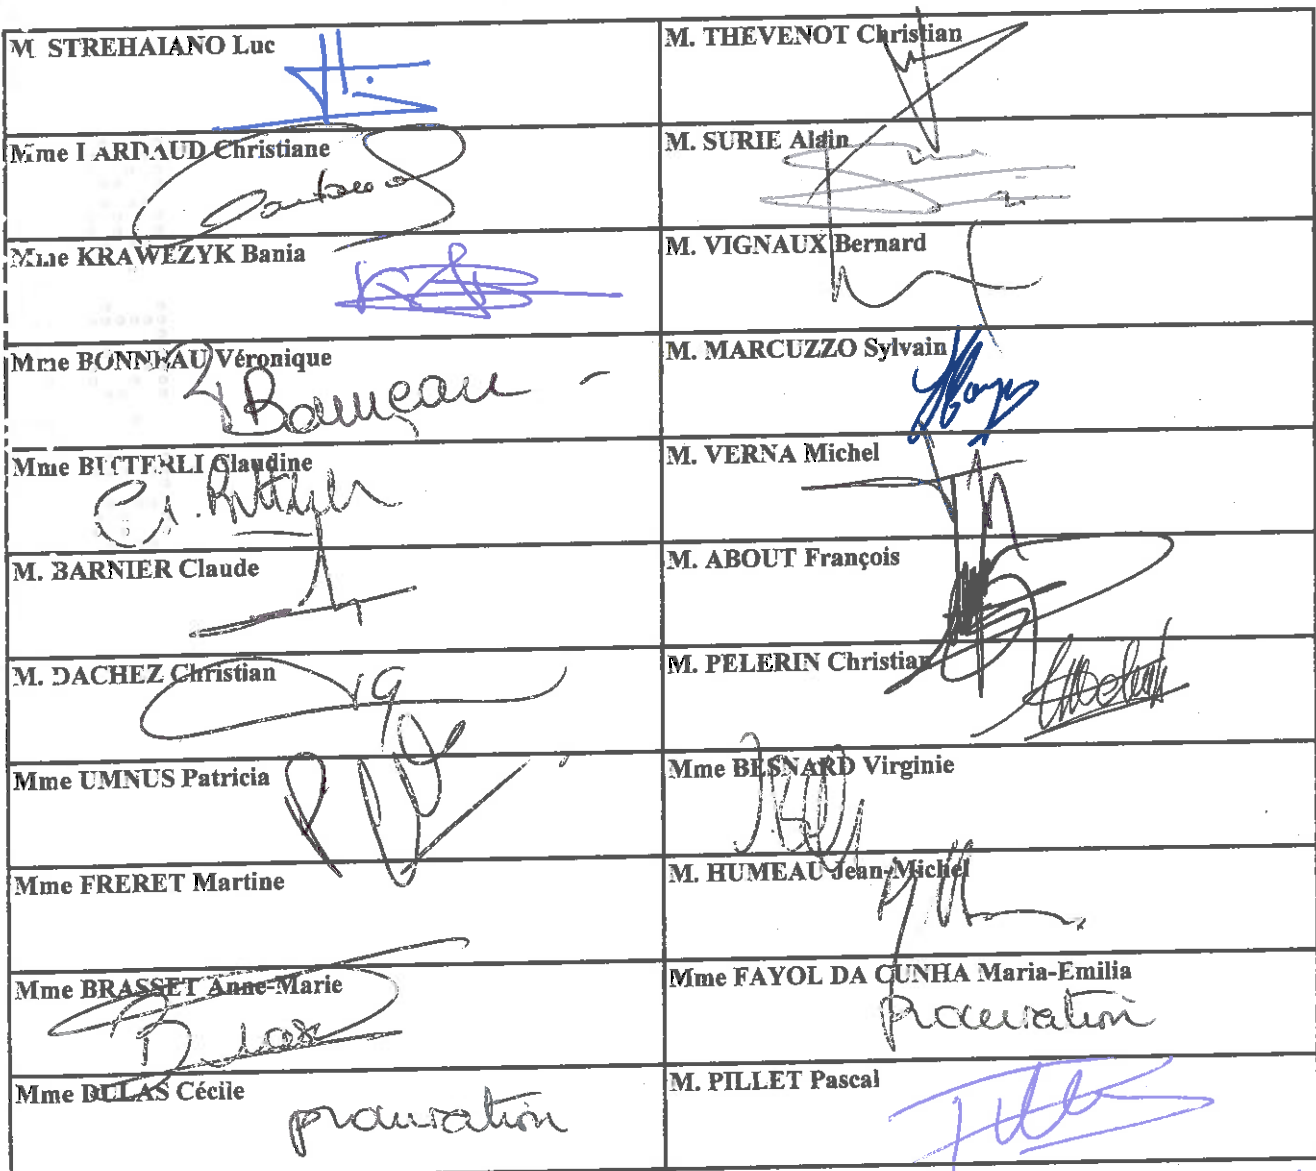 M. STREHAIANO Luc
M. THEVENOT Christian
Mme LARDAUD Christiane
M. SURIE Alain
Mme KRAWEZYK Bania
M. VIGNAUX Bernard
Mme BONNEAU Véronique
Bonneau
M. MARCUZZO Sylvain
Mme BITTERLI Claudine
M. VERNA Michel
M. BARNIER Claude
M. ABOUT François
M. DACHEZ Christian
M. PELERIN Christian
Mme UMNUS Patricia
Mme BESNARD Virginie
Mme FRERET Martine
M. HUMEAU Jean-Michel
Mme BRASSET Anne-Marie
Mme FAYOL DA CUNHA Maria-Emilia
procuration
Mme DULAS Cécile
procuration
M. PILLET Pascal